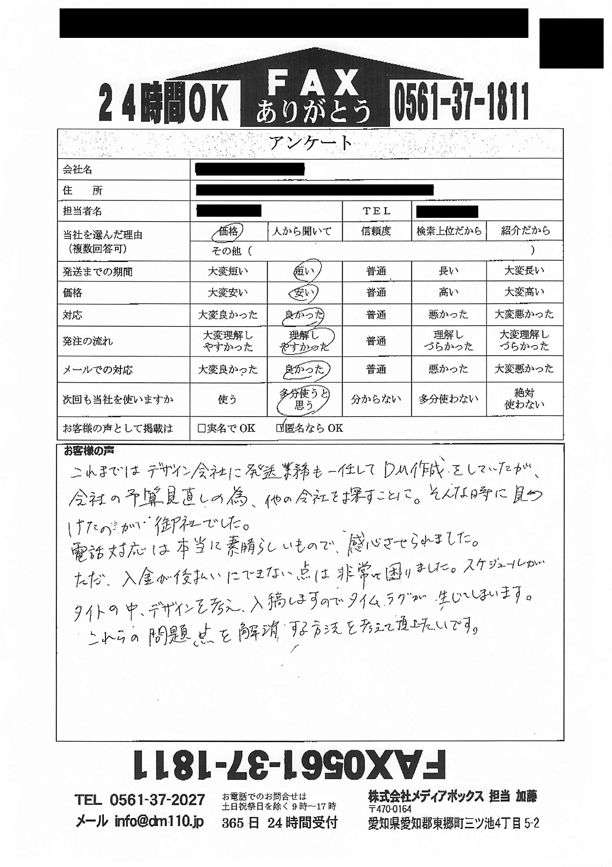 24時間OK
FAX
ありがとう
0561-37-1811
アンケート
会社名
住 所
担当者名 TEL
当社を選んだ理由 価格 人から聞いて 信頼度 検索上位だから 紹介だから
(複数回答可) その他 ( )
発送までの期間 大変短い 短い 普通 長い 大変長い
価格 大変安い 安い 普通 高い 大変高い
対応 大変良かった 良かった 普通 悪かった 大変悪かった
発注の流れ 大変理解しやすかった 理解しやすかった 普通 理解しづらかった 大変理解しづらかった
メールでの対応 大変良かった 良かった 普通 悪かった 大変悪かった
次回も当社を使いますか 使う 多分使うと思う 分からない 多分使わない 絶対使わない
お客様の声として掲載は □実名でOK ☑匿名ならOK
お客様の声
これまではデザイン会社に発送業務も一任してDM作成をしていたが、
会社の予算見直しの為、他の会社を探すことに。そんな時に見つ
けたのが御社でした。
電話対応は本当に素晴らしいもので、感心させられました。
ただ、入金が後払いにできない点は非常に困りました。スケジュールが
タイトの中、デザインを考え、入稿しますのでタイムラグが生じてしまいます。
これらの問題点を解消する方法を考えて頂きたいです。
FAX0561-37-1811
TEL 0561-37-2027
メール info@dm110.jp
お電話でのお問合せは
土日祝祭日を除く9時~17時
365日 24時間受付
株式会社メディアボックス 担当 加藤
〒470-0164
愛知県愛知郡東郷町三ツ池4丁目5-2